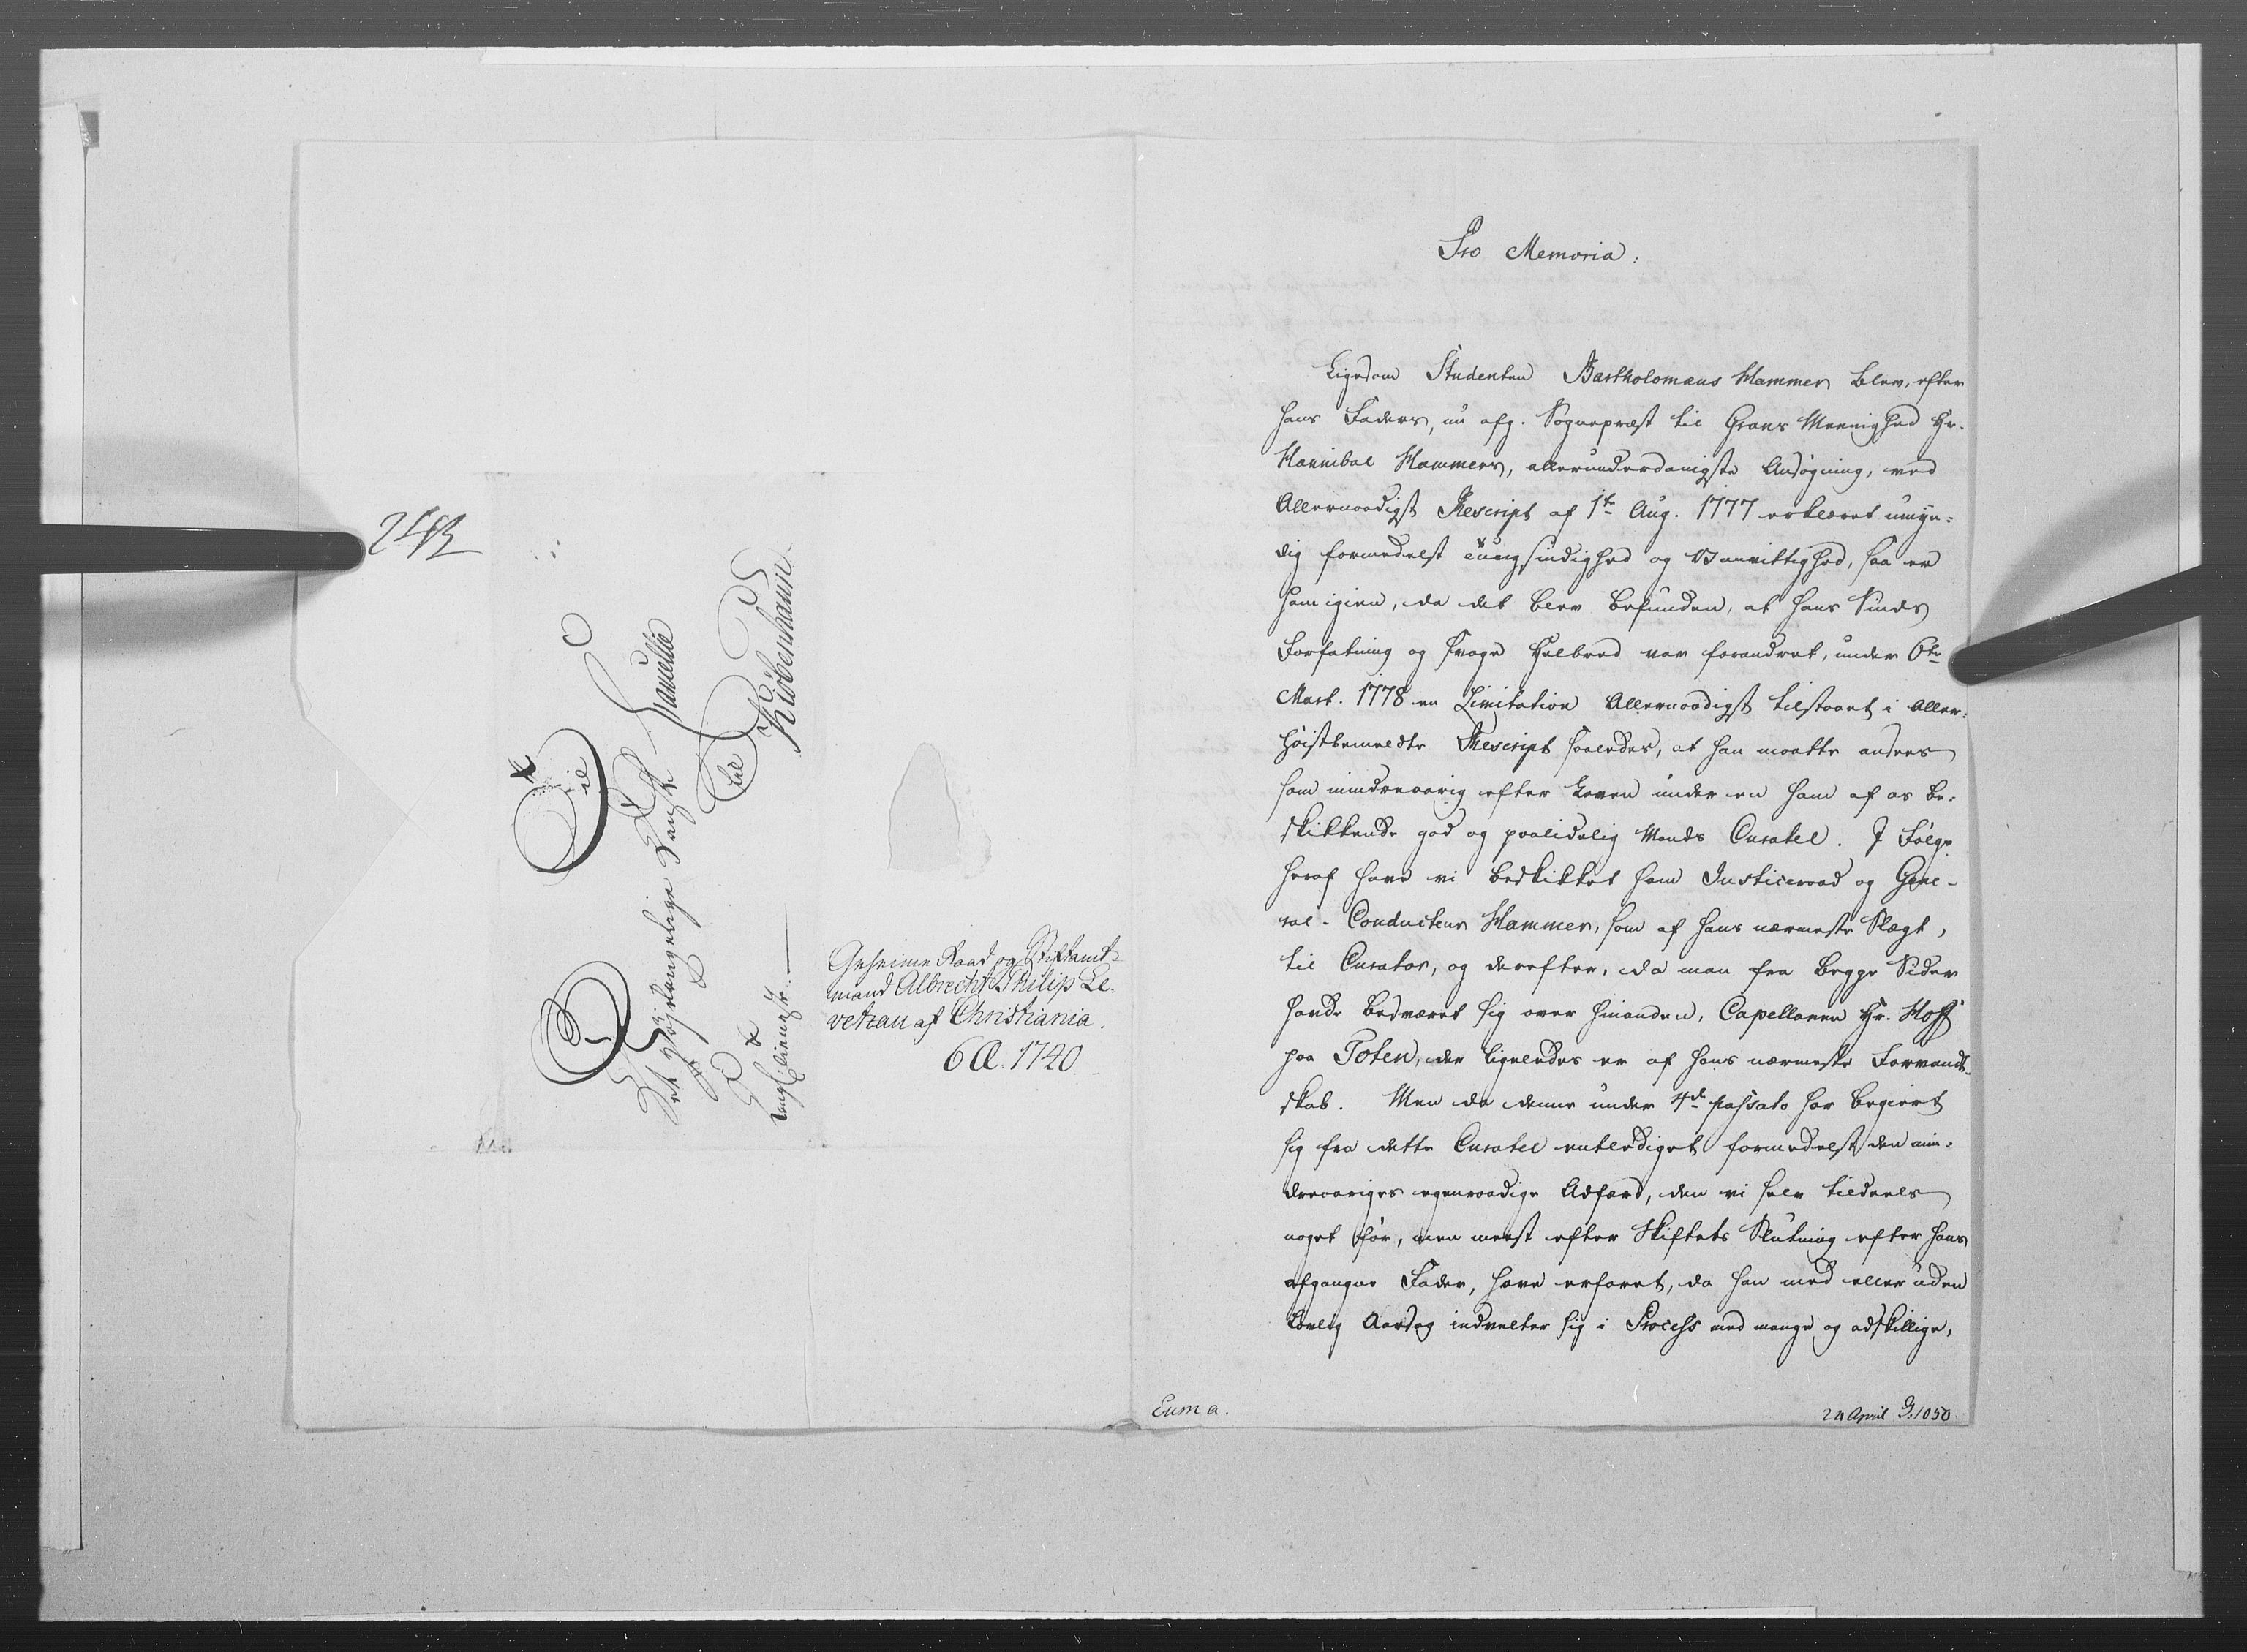 Til
Det Høylangelige Danske Cancellie
til
Kiöbenhaun
Geheime Raad og Stiftamt-
mand Albrecht Philip Le-
vetzau af Christiania.
6 Æ. 1740
Pro Memoria:
Ligesom Studenten Bartholomæus Hammer blev, efter
hans Faders, nu afg. Sognepræst til Grans Menighed Hr.
Hannibal Hammers, allerunderdanigste Ansøgning, ved
Allernaadigst Rescript af 1te Aug. 1777 erklæret umyn-
dig formedelst tungsindighed og Vanvittighed, saa er
ham igien, da det blev befunden, at hans Sinds
Forfatning og svage Helbred var forandret, under 6te
Mart. 1778 en Limitation Allernaadigst tilstaaet i Aller-
høistbemeldte Rescript saaledes, at han maatte ansees
som mindreaarig efter Loven under en ham af os be-
skikkende god og paalidelig Mands Curatel. I Følge
heraf have vi beskikket ham Justiceraad og Gene-
ral-Conducteur Hammer, som af hans nærmeste Slægt,
til Curator, og derefter, da man fra begge Sider
havde besværet sig over hinanden, Capellanen Hr. Hoff
paa Toten, der ligeledes er af hans nærmeste Forvandt-
skab. Men da denne under 4de passato har begiert
sig fra dette Curatel entlediget formedelst den min-
dreaariges egenraadige Adfærd, den vi selv tildeels
noget før, men meest efter Skiftets Slutning efter hans
afgangne Fader, have erfaret, da han med eller uden
lovlig Aarsag indvikler sig i Process med mange og adskillige,
Eum a.
24 April J: 1050